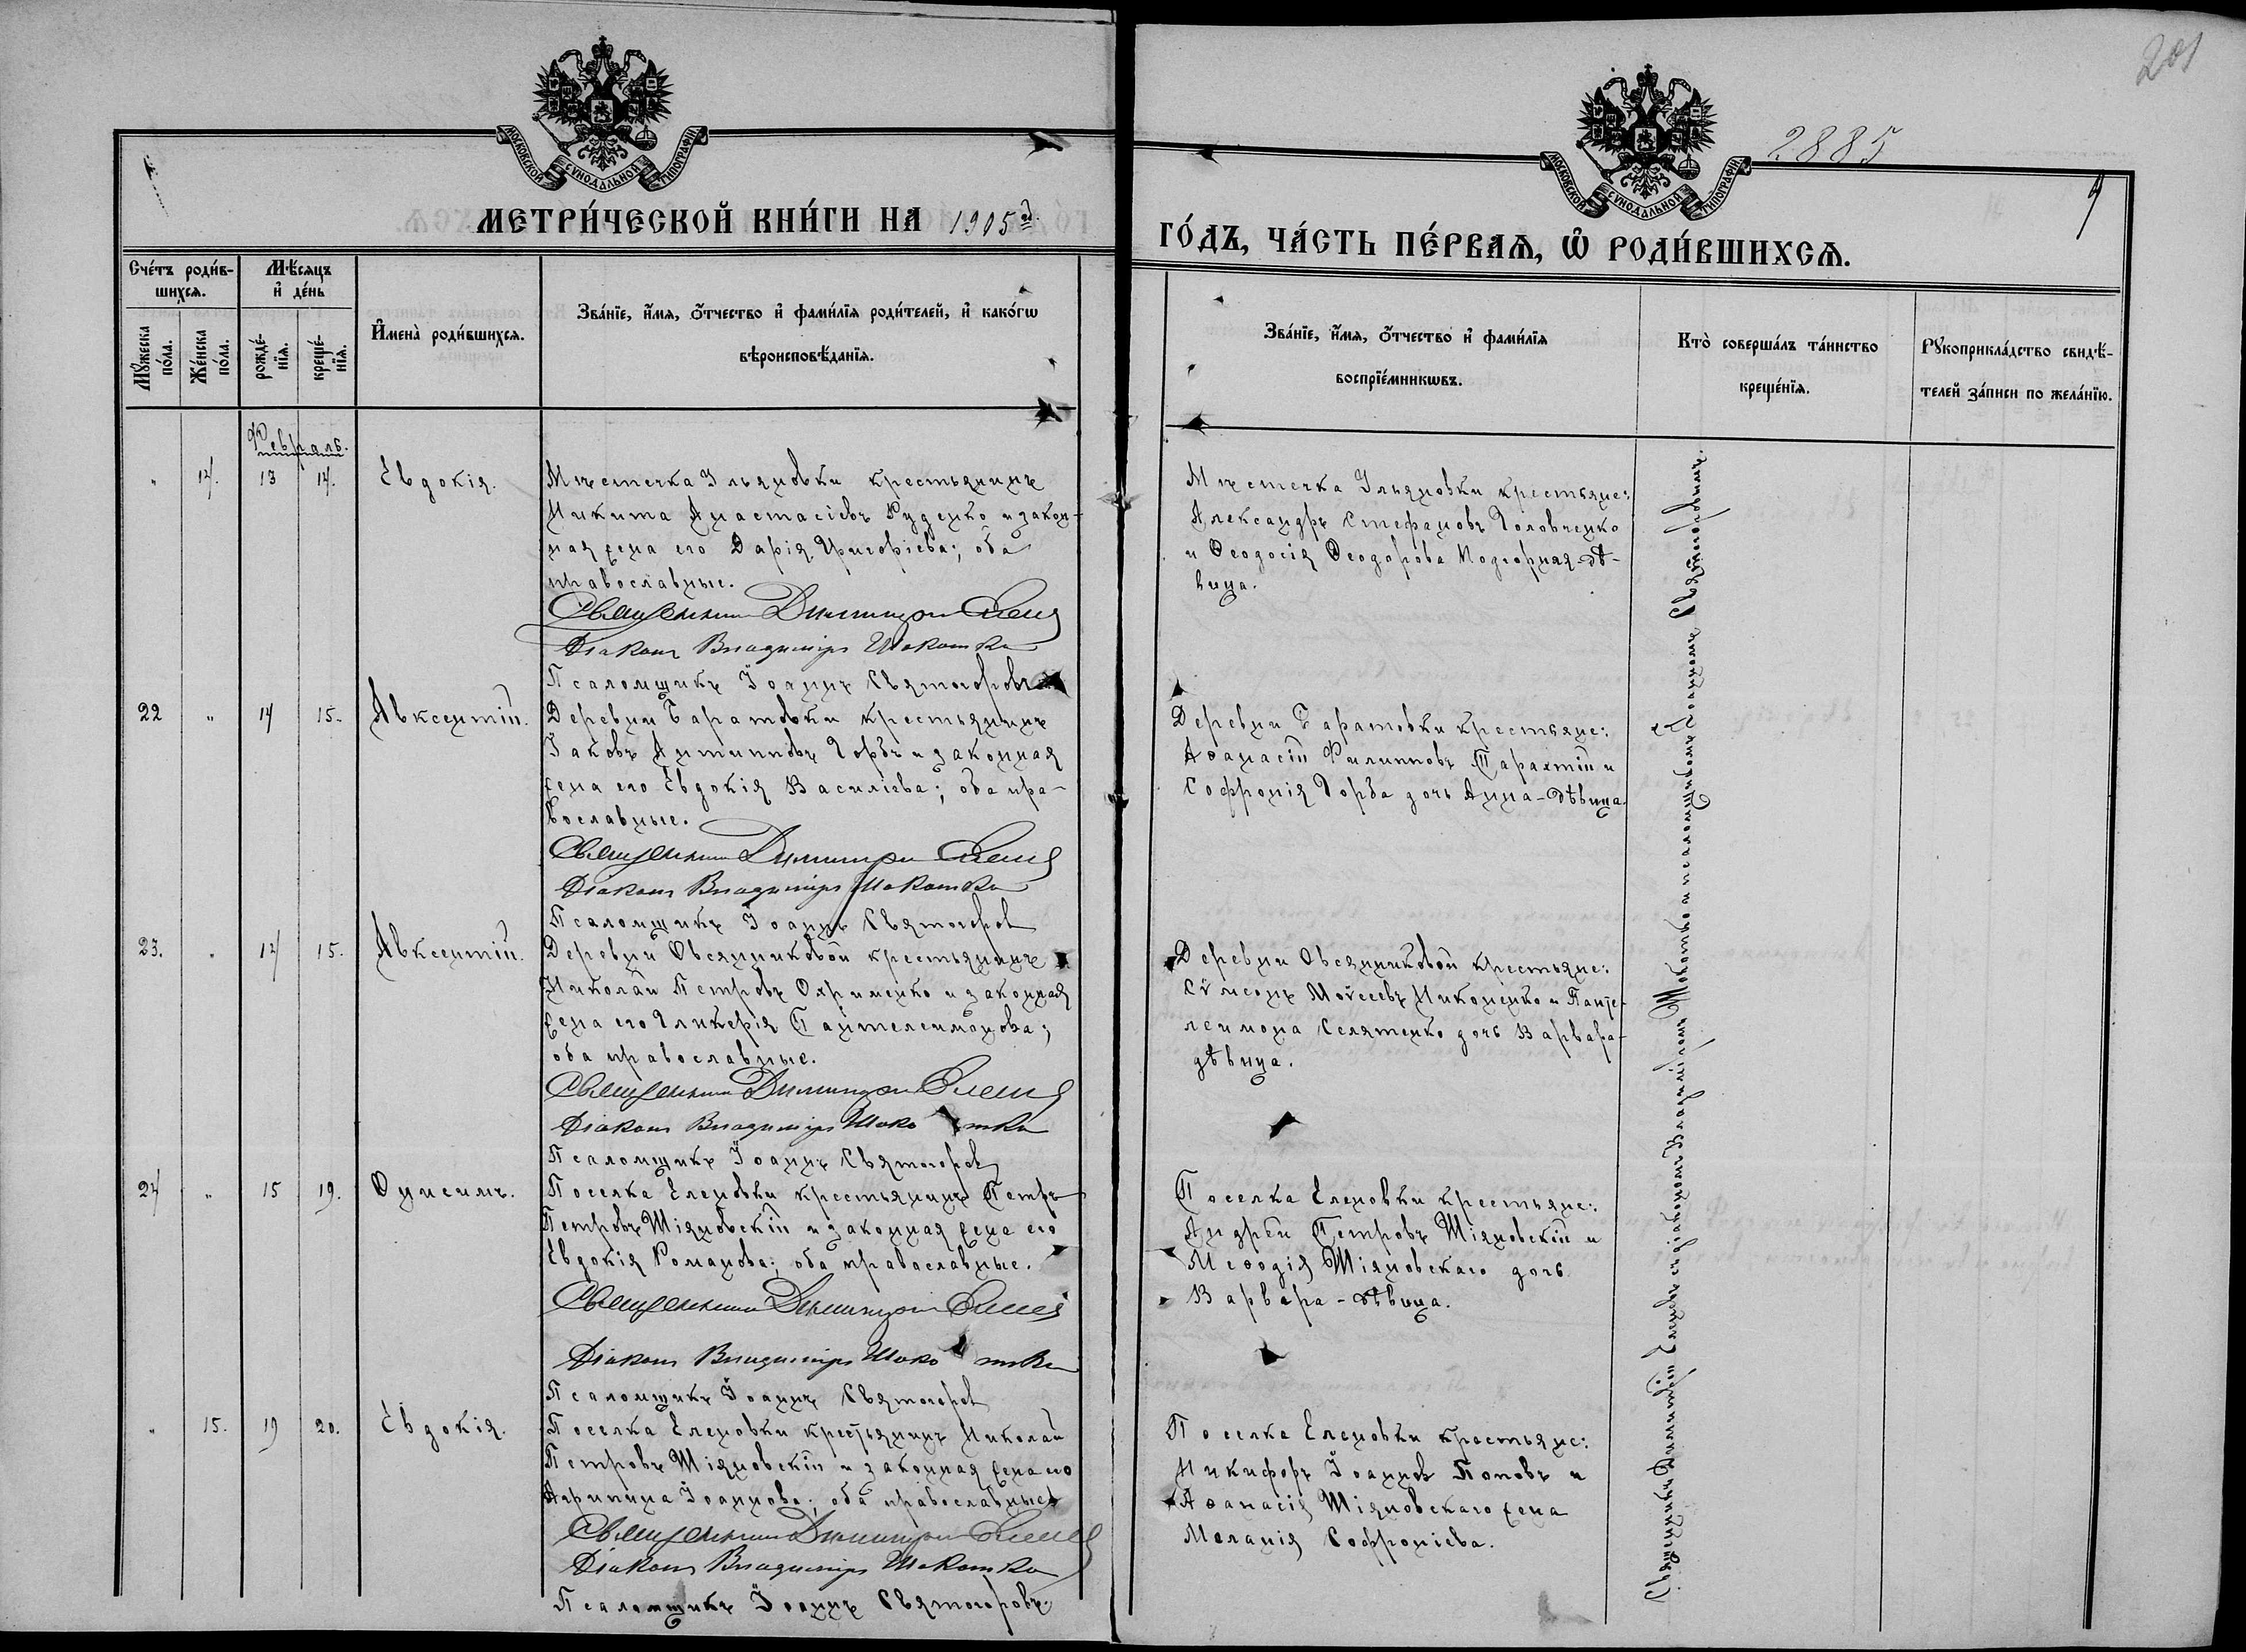 201
2885
9
МОСКОВСКОЙ СѴНОДАЛЬНОЙ ТИПОГРАФІИ
МОСКОВСКОЙ СѴНОДАЛЬНОЙ ТИПОГРАФІИ
МЕТРИ́ЧЕСКОЙ КНИ́ГИ НА 1905 й
ГО́ДЪ, ЧА́СТЬ ПЕ́РВАѦ, Ѡ РОДИ́ВШИХСѦ.
Сче́тъ роди́в-
шихсѧ.
Мꙋ́жеска по́ла.
Же́нска по́ла.
Мѣ́сѧцъ
и҆ де́нь
рожде́-нїѧ.
креще́-нїѧ.
И҆мена̀ роди́вшихсѧ.
Зва́нїе, и҆́мѧ, ѻ҆́тчество и҆ фами́лїѧ роди́телей, и҆ како́гѡ
вѣроисповѣ́данїѧ.
Зва́нїе, и҆́мѧ, ѻ҆́тчество и҆ фами́лїѧ
воспрїе́мникѡвъ.
Кто̀ соверша́лъ та́инство
креще́нїѧ.
Рꙋкоприкла́дство свидѣ́-
телей за́писи по жела́нїю.
Февраль.
" 14. 13 14. Евдокія.
Мѣстечка Ульяновки крестьянинъ
Никита Анастасіевъ Руденко и закон-
ная жена его Дарія Григоріева; оба
православные.
Священникъ Димитрій Еленевъ
Діаконъ Владиміръ Шокотько
Псаломщикъ Іоаннъ Святогоровъ
Мѣстечка Ульяновки крестьяне:
Александръ Стефановъ Головченко
и Ѳеодосія Ѳеодорова Подгорная-дѣ-
вица.
22 " 14 15. Авксентій.
Деревни Баратовки крестьянинъ
Іаковъ Антиповъ Горбъ и законная
жена его Евдокія Василіева; оба пра-
вославные.
Священникъ Димитрій Еленевъ
Діаконъ Владиміръ Шокотько
Псаломщикъ Іоаннъ Святогоровъ
Деревни Баратовки крестьяне:
Аѳанасій Филипповъ и
Софронія Горба дочь Анна-дѣвица.
23. " 14 15. Авксентій.
Деревни Овсянниковой крестьянинъ
Николай Петровъ Охрименко и законная
жена его Гликерія Пантелеимонова;
оба православные.
Священникъ Димитрій Еленевъ
Діаконъ Владиміръ Шокотько
Псаломщикъ Іоаннъ Святогоровъ
Деревни Овсянниковой крестьяне:
Сѵмеонъ Моѵсеевъ Никоненко и Панте-
леимона Селятенко дочь Варвара-
дѣвица.
24 " 15 19. Онисимъ.
Поселка Еленовки крестьянинъ Петръ
Петровъ Шіяновскій и законная жена его
Евдокія Романова; оба православные.
Священникъ Димитрій Еленевъ
Діаконъ Владиміръ Шокотько
Псаломщикъ Іоаннъ Святогоровъ
Поселка Еленовки крестьяне:
Андрей Петровъ Шіяновскій и
Меѳодія Шіяновскаго дочь
Варвара-дѣвица.
" 15. 19 20. Евдокія.
Поселка Еленовки крестьянинъ Николай
Петровъ Шіяновскій и законная жена его
Агрипина Іоаннова; оба православные
Священникъ Димитрій Еленевъ
Діаконъ Владиміръ Шокотько
Псаломщикъ Іоаннъ Святогоровъ.
Поселка Еленовки крестьяне:
Никифоръ Іоанновъ Поповъ и
Аѳанасія Шіяновскаго жена
Меланія Софроніева.
Священникъ Димитрій Еленевъ съ діакономъ Владиміромъ Шокотько и псаломщикомъ Іоанномъ Святогоровымъ.